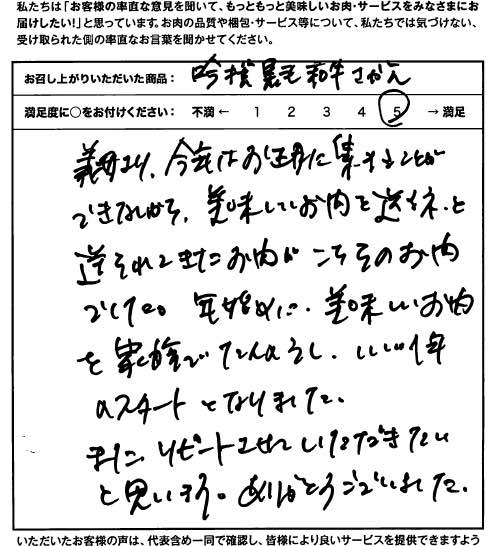 私たちは「お客様の率直な意見を聞いて、もっともっと美味しいお肉・サービスをみなさまにお
届けしたい!」と思っています。お肉の品質や梱包・サービス等について、私たちでは気づけない、
受け取られた側の率直なお言葉を聞かせてください。
お召し上がりいただいた商品： 吟撰黒毛和牛
満足度に○をお付けください： 不満 ← 1 2 3 4 5 → 満足
義母より、今年はお正月に集まることが
できないから、美味しいお肉を送るネ、と
送られてきたお肉がこちらのお肉
でした。年始めに、美味しいお肉
を家族でたんのうし、いい1年
のスタートとなりました。
またリピートさせていただきたい
と思います。ありがとうございました。
いただいたお客様の声は、代表含め一同で確認し、皆様により良いサービスを提供できますよう